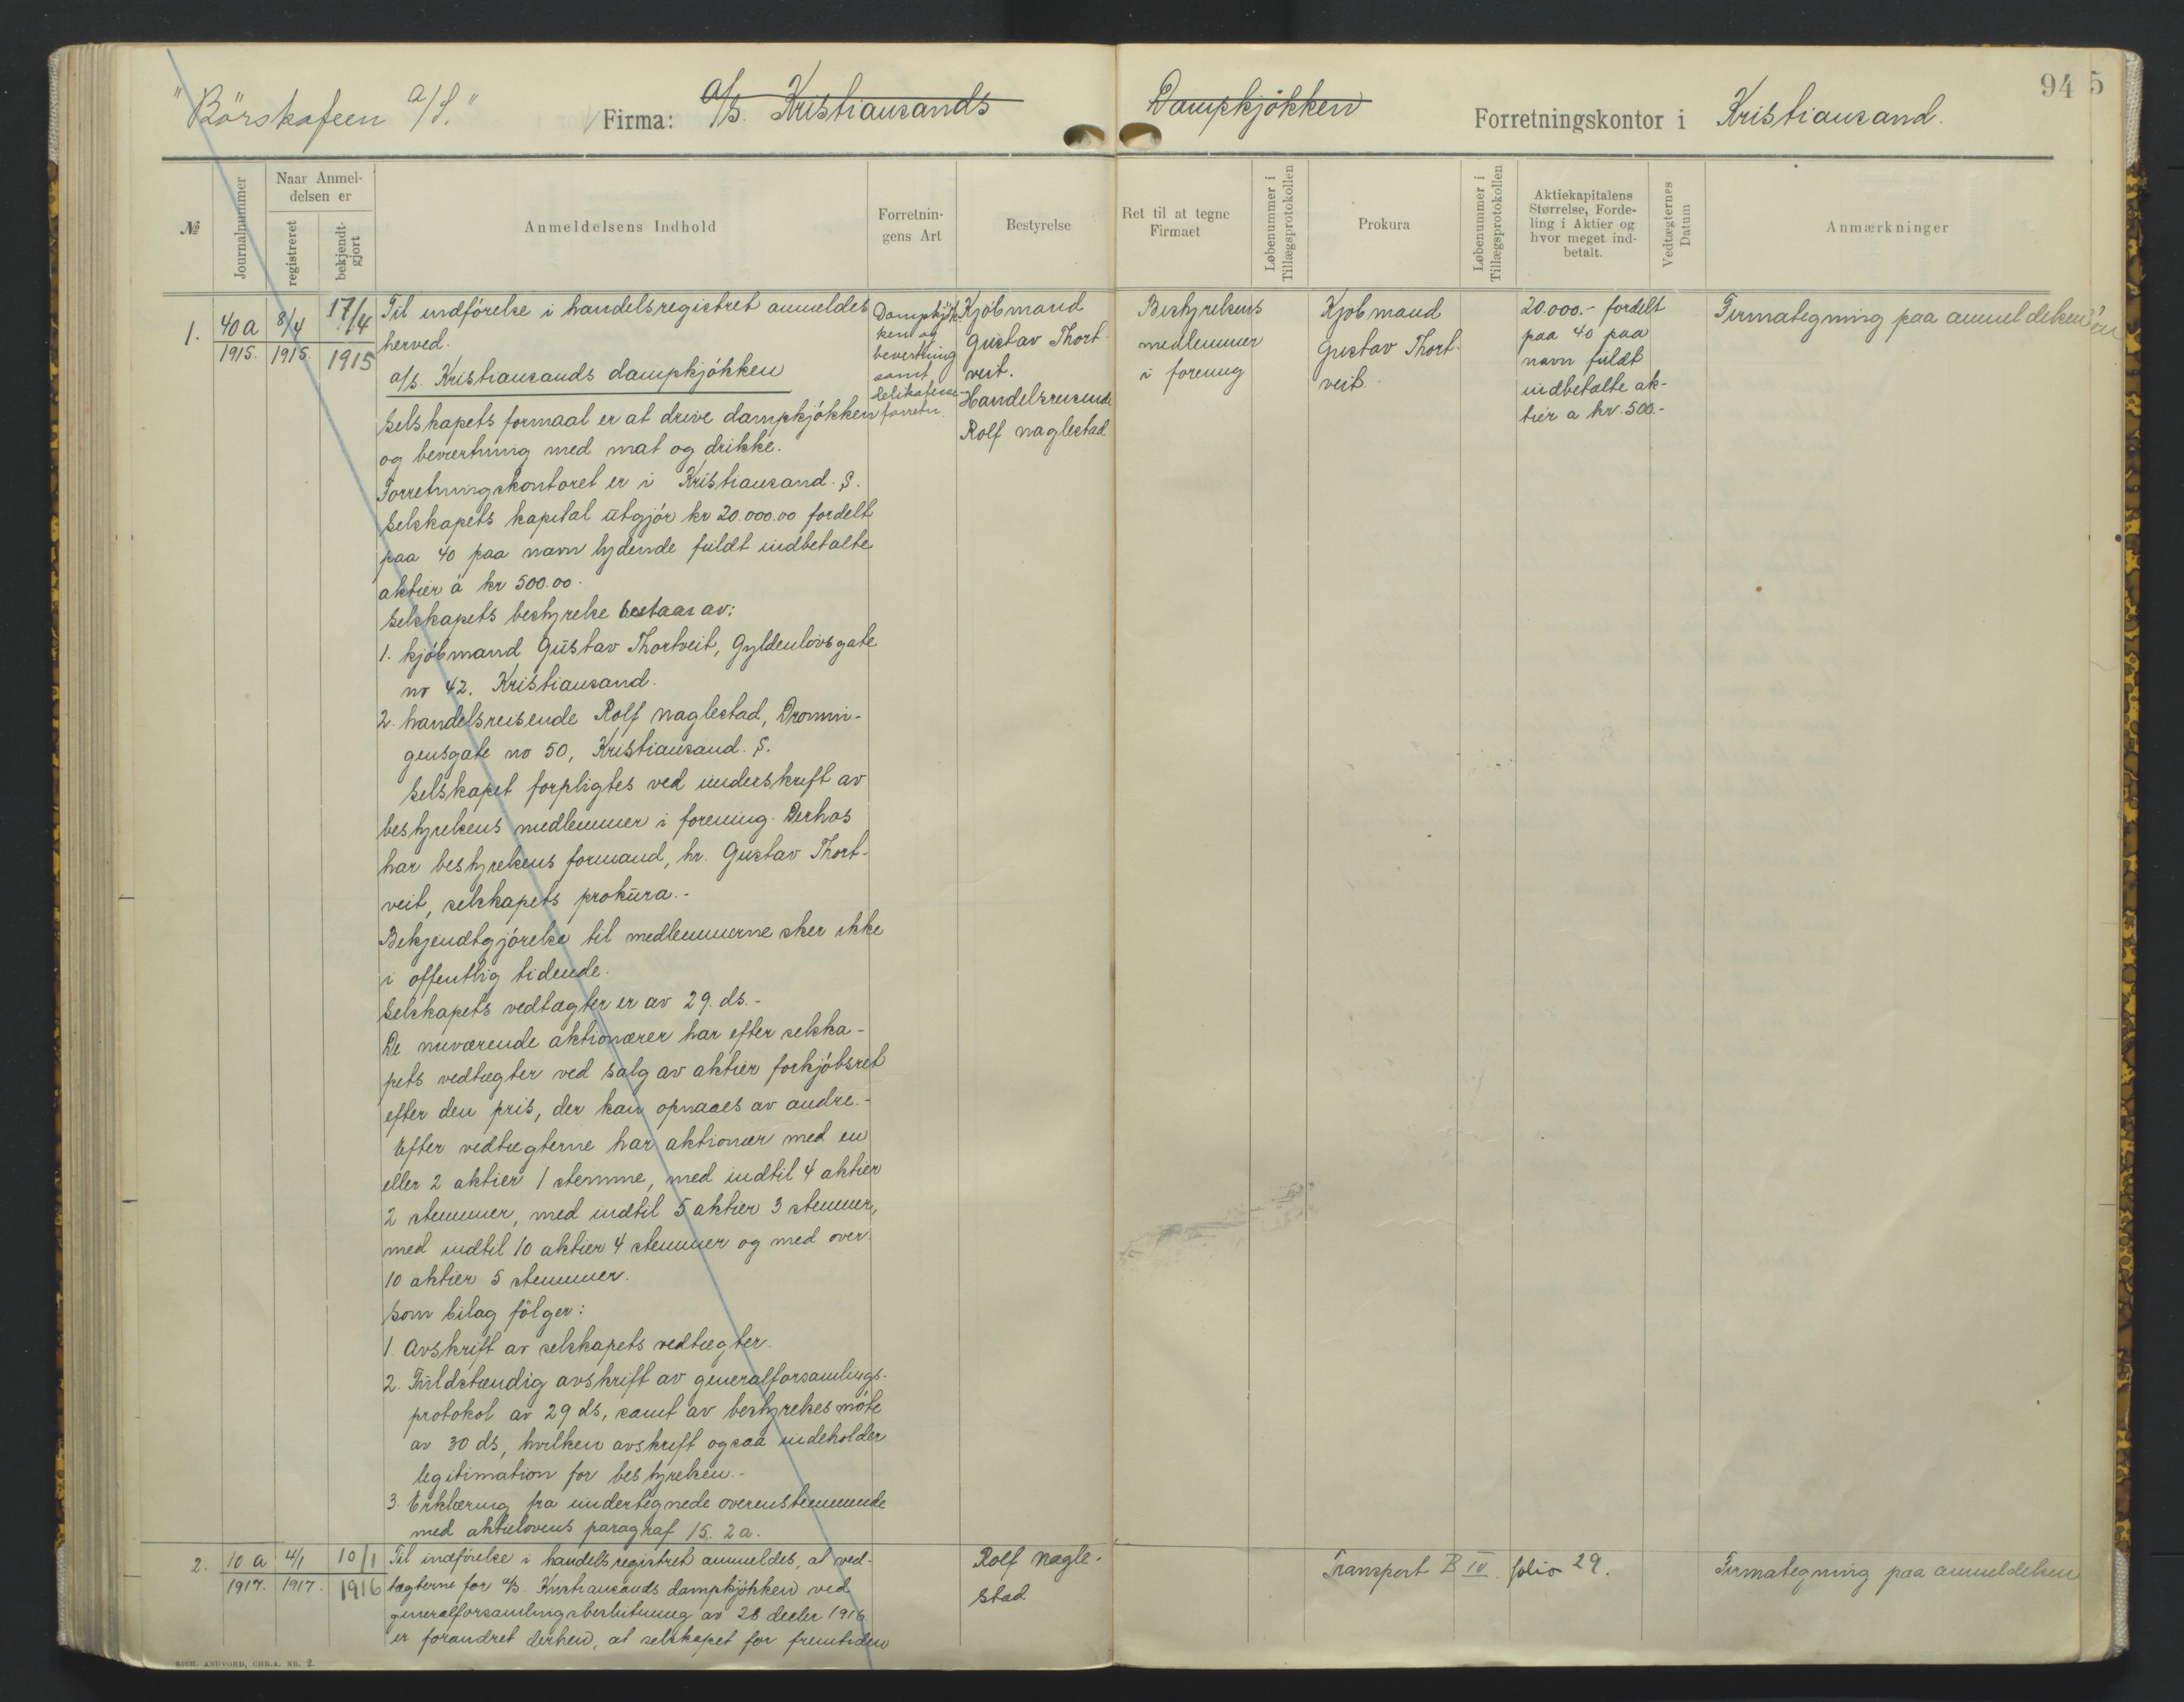 "Börskafeen a/S."
Firma: a/s. Kristiansands Dampkjökken
Forretningskontor i Kristiansand.
94 5
№
Journalnummer
Naar Anmel-
delsen er
registreret
bekjendt-
gjort
Anmeldelsens Indhold
Forretnin-
gens Art
Bestyrelse
Ret til at tegne
Firmaet
Løbenummer i
Tillægsprotokollen
Prokura
Løbenummer i
Tillægsprotokollen
Aktiekapitalens
Størrelse, Forde-
ling i Aktier og
hvor meget ind-
betalt.
Vedtægternes
Datum
Anmærkninger
1.
40a
1915.
8/4
1915.
17/4
1915
Til indförelse i handelsregistret anmeldes
herved.
a/s. Kristiansands dampkjökken
Selskapets formaal er at drive dampkjökken
og bevertning med mat og drikke.
Forretningskontoret er i Kristiansand. S.
Selskapets kapital utgjör kr 20.000.00 fordelt
paa 40 paa navn lydende fuldt indbetalte
aktier á kr 500.00.
Selskapets bestyrelse bestaar av:
1. kjöbmand Gustav Thortveit, Gyldenlövsgate
no 42. Kristiansand.
2. handelsreisende Rolf Naglestad, Dronnin-
gensgate no 50, Kristiansand. S.
Selskapet forpligtes ved underskrift av
bestyrelsens medlemmer i forening. Derhos
har bestyrelsens formand, hr. Gustav Thort-
veit, selskapets prokura.-
Bekjendtgjörelse til medlemmerne sker ikke
i offentlig tidende.
Selskapets vedtægter er av 29. ds.-
De nuværende aktionærer har efter selska-
pets vedtægter ved salg av aktier forkjöbsret
efter den pris, der kan opnaaes av andre.-
Efter vedtægterne har aktionær med en
eller 2 aktier 1 stemme, med indtil 4 aktier
2 stemmer, med indtil 5 aktier 3 stemmer,
med indtil 10 aktier 4 stemmer og med over
10 aktier 5 stemmer.
Som bilag fölger:
1. Avskrift av selskapets vedtægter.
2. Fuldstændig avskrift av generalforsamlings-
protokol av 29 ds, samt av bestyrelses möte
av 30 ds, hvilken avskrift ogsaa indeholder
legitimation for bestyrelsen.-
3. Erklæring fra undertegnede overensstemmende
med aktielovens paragraf 15. 2a.
Dampkjök-
ken og
bevertning
samt
delikatesse-
forretn.
Kjöbmand
Gustav Thort-
veit.
Handelsreisende
Rolf Naglestad
Bestyrelsens
medlemmer
i forening
Kjöbmand
Gustav Thort-
veit.
20.000.- fordelt
paa 40 paa
navn fuldt
indbetalte ak-
tier a kr. 500.-
Firmategning paa anmeldelsen
2.
10 a
1917.
4/1
1917.
10/1
1916
Til indförelse i handelsregistret anmeldes, at ved-
tægterne for a/s. Kristiansands dampkjökken ved
generalforsamlingsbeslutning av 28 decbr 1916
er forandret derhen, at selskapet for fremtiden
Rolf Nagle-
stad
Transport B IV folio 29.
Firmategning paa anmeldelsen
RICH. ANDVORD, CHR.A. NR. 2.